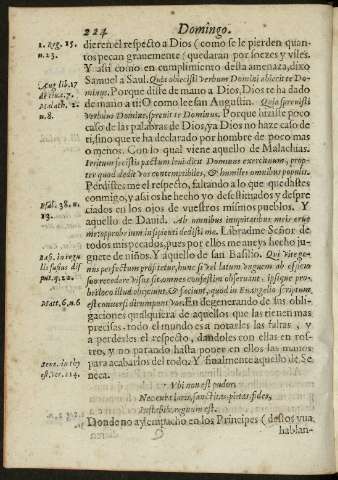 224 Domingo.
1. Reg. 15.
n. 23.
dieren el respecto a Dios (como se le pierden quan-
tos pecan grauemente) quedaran por soezes y viles.
Y assi como en cumplimiento desta amenaza, dixo
Samuel a Saul. Quia abiecisti verbum Domini abiecit te Do-
minus. Porque diste de mano a Dios, Dios te ha dado
de mano a ti: O como lee san Augustin. Quia spreuisti
verbum Domini, spreuit te Dominus. Porque hiziste poco
caso de las palabras de Dios, ya Dios no haze caso de
ti, sino que te ha declarado por hombre de poco mas
o menos. Con lo qual viene aquello de Malachias.
Irritum fecistis pactum leui dicit Dominus exercituum, prop-
ter quod dedit vos contemptibiles, & humiles omnibus populis.
Perdistesme el respecto, faltando a lo que quedastes
conmigo, y assi os he hecho yo desestimados y despre
ciados en los ojos de vuestros mismos pueblos. Y
aquello de Dauid. Ab omnibus iniquitatibus meis erue
me opprobrium insipienti dedisti me. Libradme Señor de
todos mis pecados, pues por ellos me aueys hecho ju-
guete de niños. Y aquello de san Basilio.
Aug lib. 17
Malach. 2.
n. 8.
Psal. 38. n.
Basi. in regu
lis fusius dis
put. q. 20.
Matt. 5. n. 6
est
En degenerando de sus obli-
gaciones qualquiera de aquellos que las tienen mas
precisas, todo el mundo es a notarles las faltas, y
a perderles el respecto, dandoles con ellas en ros-
tro, y no parando hasta poner en ellos las manos
para acabarlos del todo. Y finalmente aquello de Se
neca.
Vbi non est pudor,
Nec cura iuris, sanctitas, pietas, fides,
Instabile regnum est.
Donde no ay empacho en los Principes (destos vua
hablan-